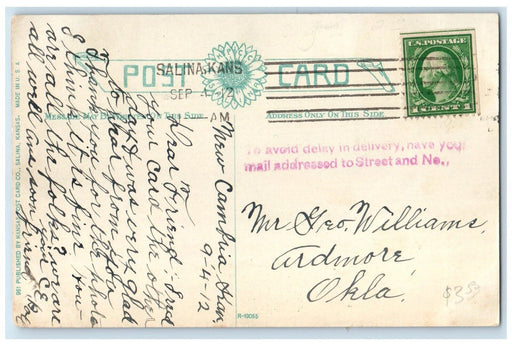 POST CARD
SALINA, KANS
SEP
AM
U.S. POSTAGE
CENT 1
MESSAGE MAY BE
ADDRESS ONLY ON THIS SIDE
To avoid delay in delivery, have your
mail addressed to Street and No.,
Mr. Geo. Williams,
Ardmore
Okla.
$3.59
R-19055
New Cambria, Kan.
9-4-12
Dear Friend:
your card the other
day & was very glad
to hear from you.
Thank you for the
I think it is fine. How
are all the folks? We are
all well
your friend,
961 PUBLISHED BY KANSAS POST CARD CO., SALINA, KANSAS. MADE IN U.S.A.